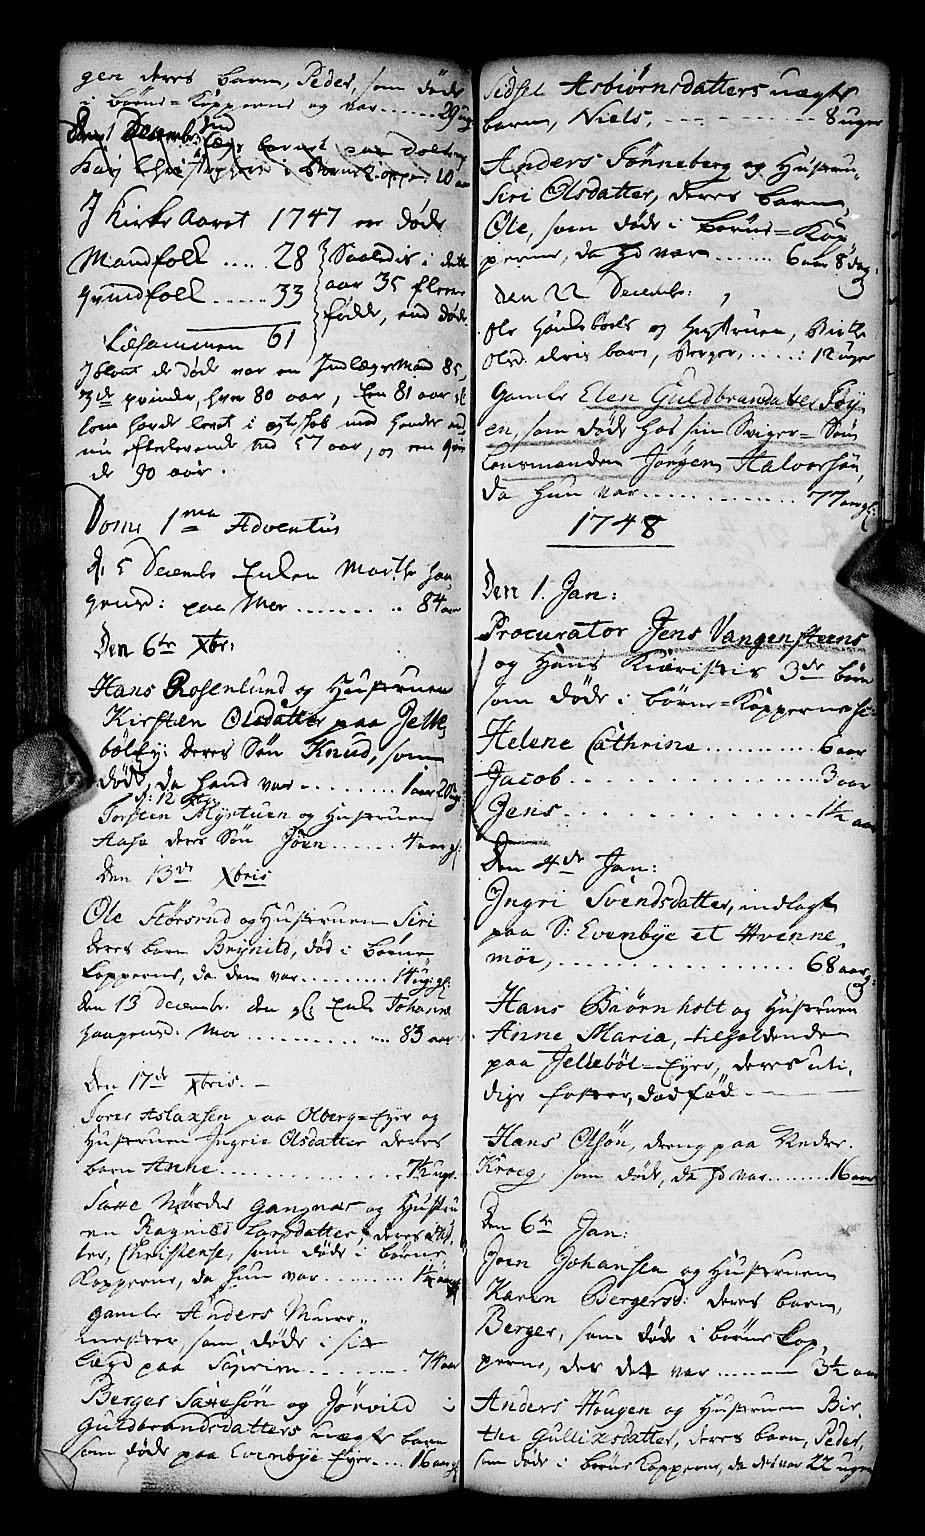 gen deres barn, Peder, som døde
i børne=Kopperne og var ...... 29 ug
J Kirke Aaret 1747 er døde
Mandfolk ..... 28
Qvindfolk ...... 33
Tilsammen 61
Saaledis i dette
aar 35 flere
fødde, end døde
Iblant de døde var en Indlægs Mand 85,
3de qvinder, hver 80 aar, Een 81 aar gl.
som hafde levet i egteskab med hendes
nu efterlevende 57 aar, og een
de 90 aar.
Domi 1ma Adventus
d. 5 Decembr Enken Marthe Haa
gensd: paa Moe ........ 84 aar
Den 6te Xbr:
Hans Rosenlund og Hustruen
Kirsten Olsdatter paa Jelle
bøl Ey: deres Søn Knud, som
døde, da hand var ........ 1 aar 20 ug
d: 12
Torsten Myrtuen og Hustruen
Aase deres Søn Joen ...... 4 aar gl:
Den 13de Xbris
Ole Størsrud og Hustruen Siri
deres barn Brynild, død i børne
Kopperne, da den var ........ 14 ug: gl:
Den 13 Decembr: den gl: Enke Johanne
Haagensd. Moe ........... 83 aar
Den 17de Xbris. -
Søren Aslaxsen paa Olberg=Eyer og
Hustruen Ingrie Olsdatter deres
barn Anne .............. 7½ ug.
Saxe Gangnæs og Hustru
en Ragnild Larsdatter, deres dat,
ter, Christense, som døde i børne
Kopperne, da hun var ........ 1¼ aar
Gamle Anders Muur=
mester, som døde i sit
Lægd paa ........ 74 aar
Berger Saxesøn og Jørild
Guldbrandsdatters uægte barn
som døde paa Evenbye Eyer .... 16 aar gl
Sidsel Asbiørnsdatters uægte
barn, Niels, - - - - - - 8 uger
Anders Tønneberg og Hustru,,
Siri Olsdatter, deres barn,
Ole, som døde i børne=Kop
perne, da hd var ........ 6 aar 8 dag:
Den 22 Decembr:
Ole og Hustruen, Birthe
Olsd. deris barn, Berger, .....: 12 uger
Gamle Elen Guldbrandatter Tøy
en, som døde hos sin Sviger=Søn
Lensmanden Jørgen Halvorsøn,
da hun var .............. 77 aar gl:
1748
Den 1. Jan:
Procurator Jens Vangensteens
og Hans Kiæristis 3de børn
som døde i børne=Kopperne
Helene Cathrine .......... 6 aar
Jacob .................. 3 aar
Jens .................. 1½ aar
Den 4de Jan:
Ingri Svendsdatter, indlagt
paa S: Evenbye et Hvenne
moe, .................. 68 aar
Hans Biørnholt og Hustruen
Anne Maria, tilholdende
paa Jellebøl=Eyer, deres uti,
dige foster, dødfød - - -
Hans Olsøn, dreng paa Neder
Kroeg, som døde, da hd var ........ 16 aar
Den 6te Jan:
Joen Johansen og Hustruen
Karen Bergersd: deres barn,
Berger, som døde i børne Kop,
perne, der det var ...... 3½ aar
Anders Haugen og Hustruen Bir-
the Gullixsdatter, deres barn, Peder,
som døde i børne Kopperne, da det var 22 uger